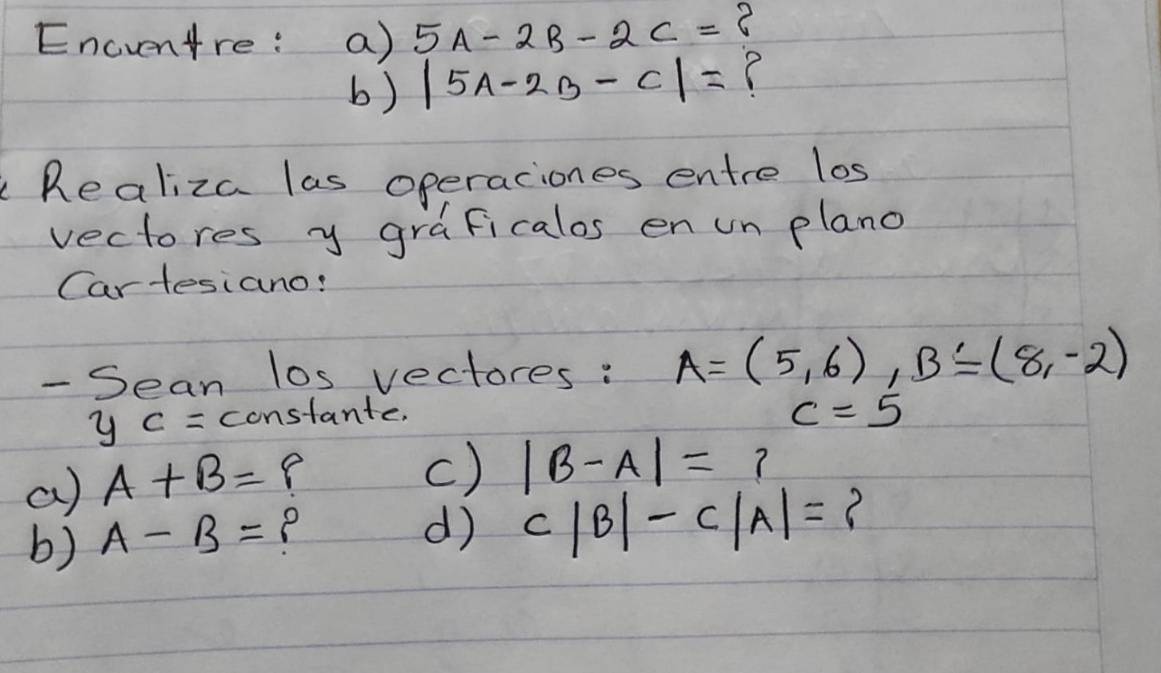 Encuentre: a) 5A - 2B - 2C = ?
b) |5A - 2B - C| = ?
Realiza las operaciones entre los
vectores y gráficalos en un plano
Cartesiano:
- Sean los vectores: A = (5,6), B = (8,-2)
y c = constante. c = 5
a) A + B = ? c) |B - A| = ?
b) A - B = ? d) c|B| - c|A| = ?